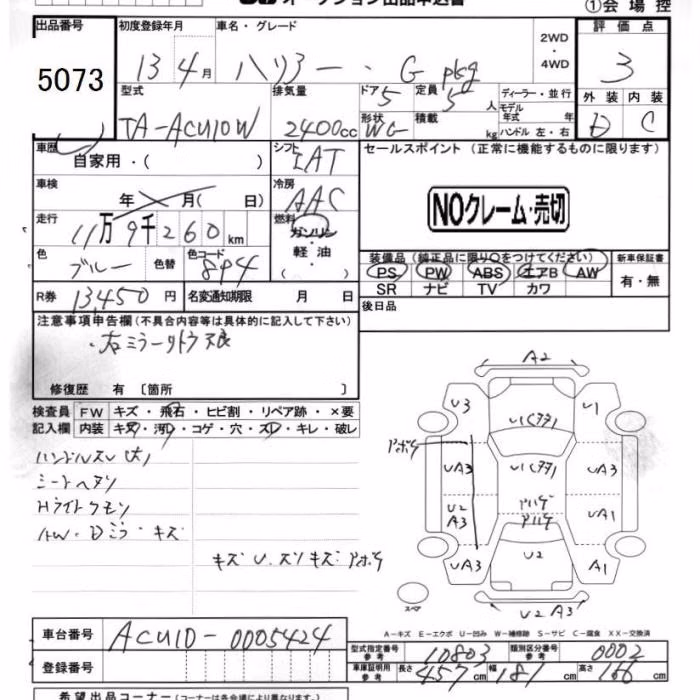 オークション出品申込書
①会場控
出品番号 初度登録年月 車名・グレード 評価点
5073 13 4月 ハリアー・G pkg 2WD・4WD 3
型式 排気量 ドア 定員 ディーラー・並行 外装 内装
TA-ACU10W 2400cc 5 5人 モデル年式 年 D C
形状 WG 積載 kg ハンドル 左・右
車歴 自家用・( ) シフト IAT セールスポイント (正常に機能するものに限ります)
車検 年 月( 日) 冷房 AAC
NOクレーム・売切
走行 11万9千260km 燃料 ガソリン 軽油 ( )
色 ブルー 色替 色コード 8P4 装備品 (純正品に限り○をつけてください) 新車保証書
PS PW ABS エアB AW 有・無
SR ナビ TV カワ
R券 13,450円 名変通知期限 月 日 後日品
注意事項申告欄 (不具合内容等は具体的に記入して下さい)
修復歴 有 〔箇所 〕
検査員 FW キズ・飛石・ヒビ割・リペア跡・×要
記入欄 内装 キズ・汚レ・コゲ・穴・スレ・キレ・破レ
ハンドルスレ 大
シートヘタリ
Hライトクモリ
キズ U.スリキズ
A2
U3 U1
U1
UA3 U1 UA3
U2 A3 UA1
UA3 U2 A1
スペア U2 A3
A-キズ E-エクボ U-凹み W-補修跡 S-サビ C-腐食 XX-交換済
車台番号 ACU10-0005424
型式指定番号 参考 10803 類別区分番号 参考 0002
登録番号 車庫証明用 参考 長さ 457cm 幅 181cm 高さ 166cm
希望出品コーナー (コーナーは各会場により異なります)